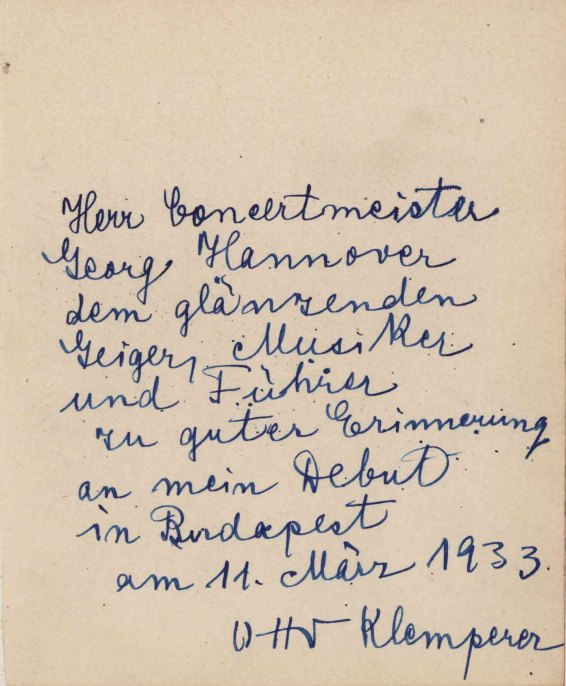 Herr Concertmeister
Georg Hannover
dem glänzenden
Geiger, Musiker
und Führer
zu guter Erinnerung
an mein Debut
in Budapest
am 11. März 1933.
Otto Klemperer